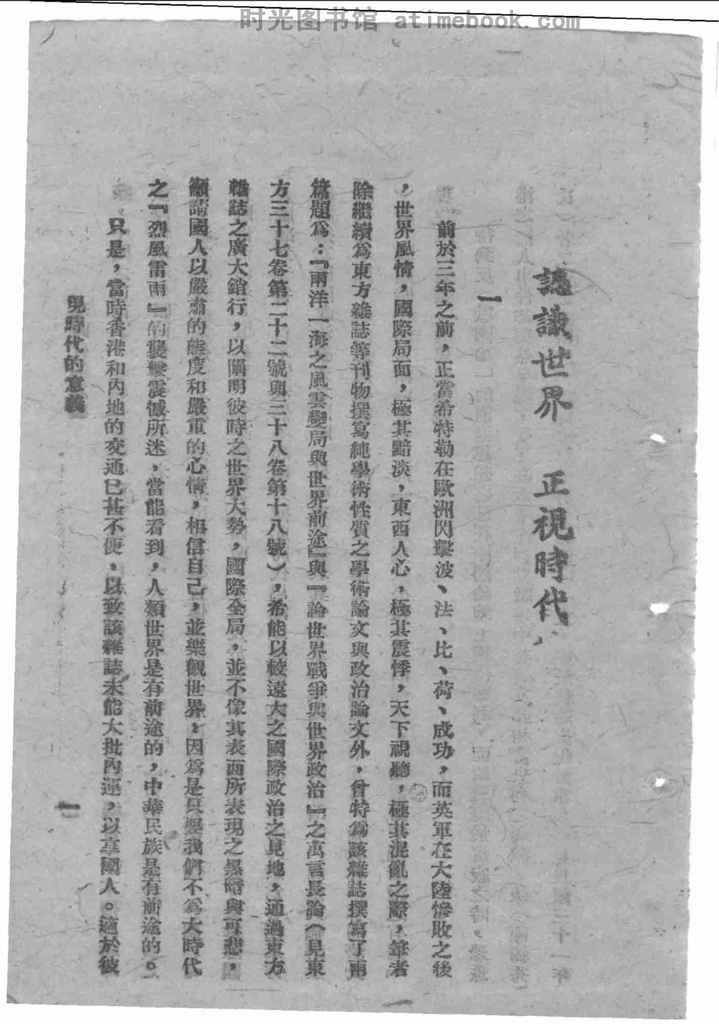 时光图书馆 atimebook.com
認識世界 正視時代
一
前於三年之前，正當希特勒在歐洲閃擊波、法、比、荷、成功，而英軍在大陸慘敗之後
，世界風情，國際局面，極其黯淡，東西人心，極其震悸，天下視聽，極其混亂之際，筆者
除繼續為東方雜誌等刊物撰寫純學術性質之學術論文與政治論文外，曾特為該雜誌撰寫了兩
篇題為：『兩洋一海之風雲變局與世界前途』與『論世界戰爭與世界政治』之萬言長論（見東
方三十七卷第二十二號與三十八卷第十八號），希能以較遠大之國際政治之見地，通過東方
雜誌之廣大銷行，以闡明彼時之世界大勢，國際全局，並不像其表面所表現之黑暗與可悲，
籲請國人以嚴肅的態度和嚴重的心情，相信自己，並樂觀世界，因為是只要我們不為大時代
之『烈風雷雨』的襲擊震憾所迷，當能看到，人類世界是有前途的，中華民族是有前途的。
只是，當時香港和內地的交通已甚不便，以致該雜誌未能大批內運，以享國人。適於彼
時代的意義
一